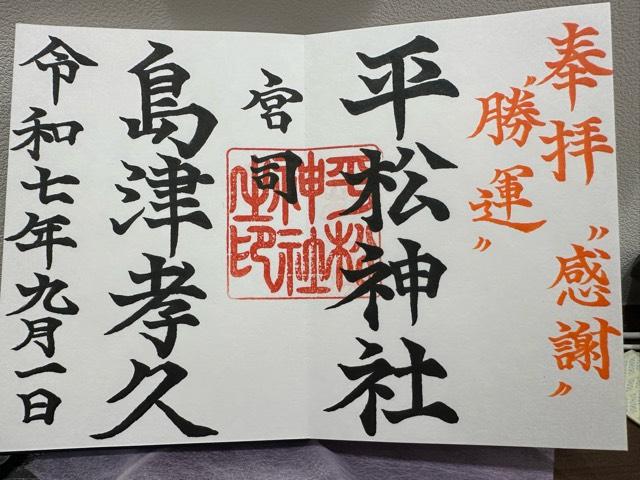 奉拝 〝感謝〟
〝勝運〟
平松神社
宮司
島津孝久
令和七年九月一日
平松
神社
之印